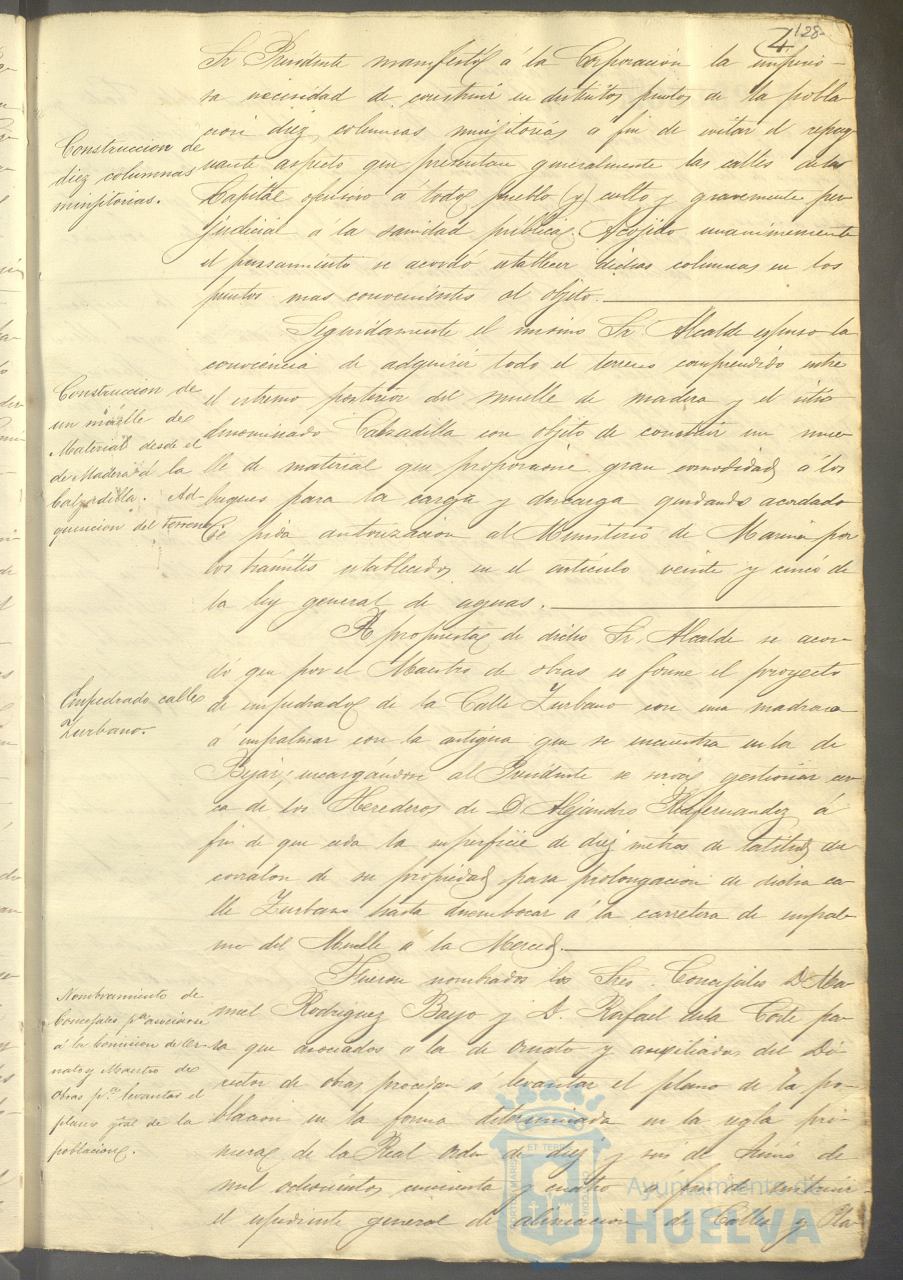 4 128
Sr Presidente manifestó á la Corporacion la imperio-
sa necesidad de construir en distintos puntos de la pobla-
cion diez columnas minjitorias a fin de evitar el repug
nante aspecto que presentan generalmente las calles de la
Capital ofensivo á todo pueblo (y) culto y gravemente per
judicial á la sanidad pública. Acojido unanimemente
el pensamiento se acordó establecer dichas columnas en los
puntos mas convenientes al objeto.
Construccion de
diez columnas
minjitorias.
Seguidamente el mismo Sr. Alcalde espuso la
conveniencia de adquirir todo el terreno comprendido entre
el estremo posterior del muelle de madera y el sitio
denominado Calzadilla con objeto de construir un mue-
lle de material que proporcione gran comodidad á los
buques para la carga y descarga quedando acordado
Se pida autorizacion al Ministerio de Marina por
los trámites establecidos en el artículo veinte y cinco de
la ley general de aguas.
Construccion de
un muelle de
Material desde el
de Madera á la
Calzadilla. Ad-
quisicion del terreno
A propuesta de dicho Sr. Alcalde se acor-
dó que por el Maestro de obras se forme el proyecto
de empedrado de la Calle Zurbano con una madrona
á empalmar con la antigua que se encuentra en la de
Bejar; encargándose al Presidente se sirva gestionar cer
ca de los Herederos de D. Alejandro Fernandez á
fin de que ceda la superficie de diez metros de latitud del
corralon de su propiedad para prolongacion de dicha ca-
lle Zurbano hasta desembocar á la carretera de empal-
me del Muelle a la Merced.
Empedrado calle
Zurbano.
Fueron nombrados los Sres. Concejales D. Ma-
nuel Rodriguez Bayo y D. Rafael de la Corte pa-
ra que asociados a la de ornato y auxiliados del Di-
rector de obras procedan a levantar el plano de la po-
blacion en la forma determinada en la regla pri-
mera de la Real orden de diez y seis de Junio de
mil ochocientos cincuenta y cuatro á fin de instruir
el espediente general de alineacion de Calles y Pla-
Nombramiento de
Concejales pª asociarse
á la Comision de Or-
nato y Maestro de
Obras pª levantar el
plano gral de la
poblacion.
Ayuntamiento de
HUELVA